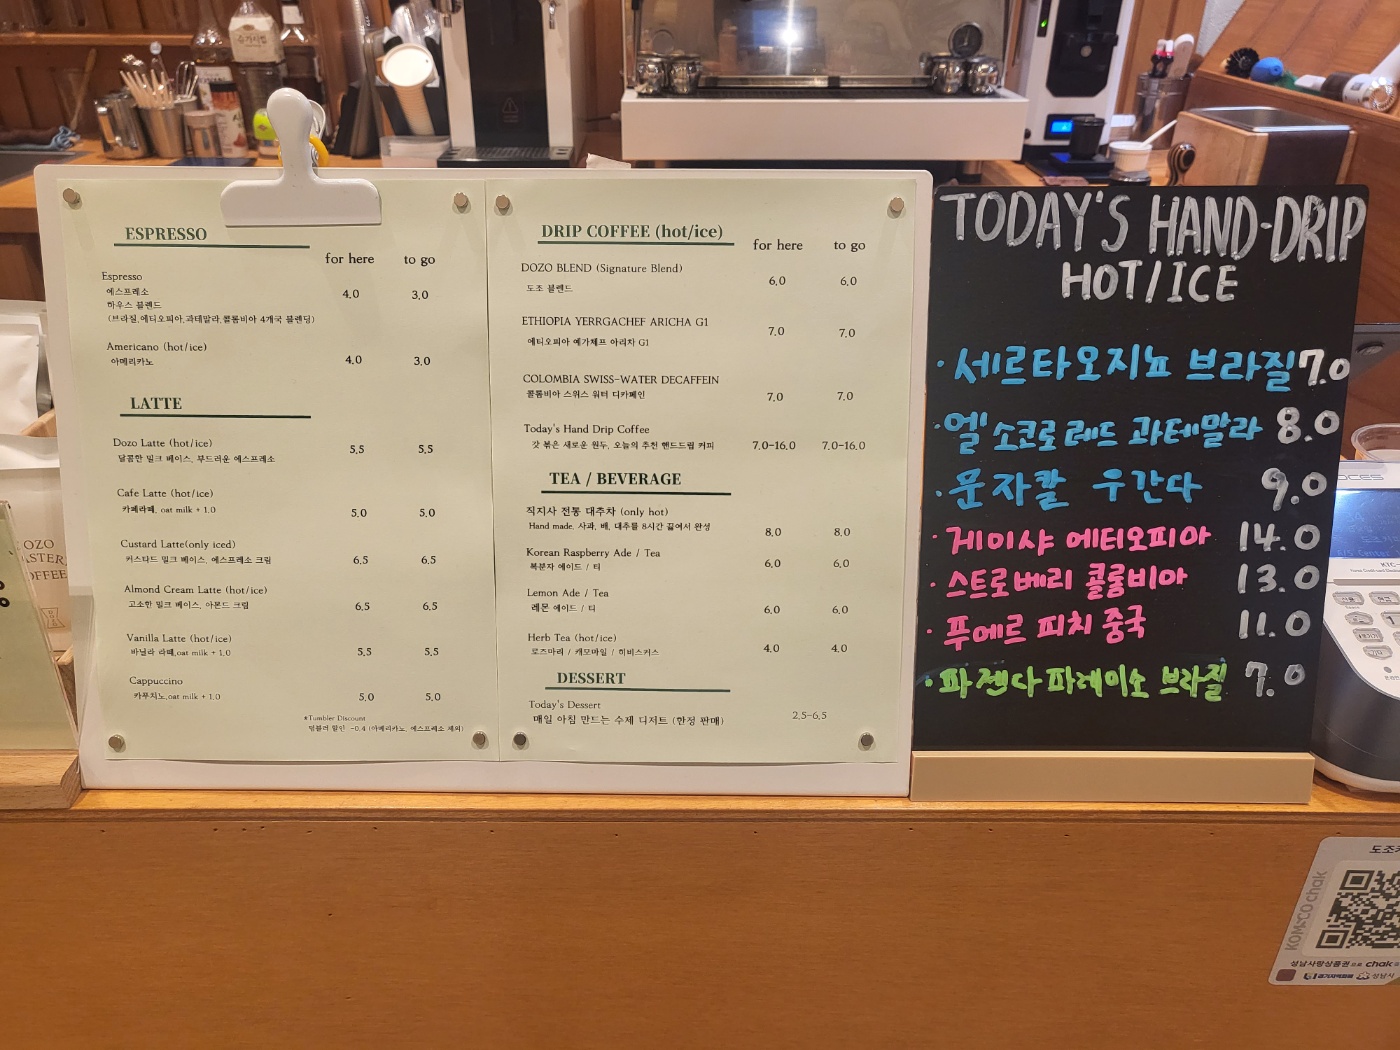 ESPRESSO
for here to go
Espresso
에스프레소 4.0 3.0
하우스 블렌드
(브라질,에티오피아,과테말라,콜롬비아 4개국 블렌딩)
Americano (hot/ice)
아메리카노 4.0 3.0
LATTE
Dozo Latte (hot/ice)
달콤한 밀크 베이스, 부드러운 에스프레소 5.5 5.5
Cafe Latte (hot/ice)
카페라떼, oat milk + 1.0 5.0 5.0
Custard Latte(only iced)
커스타드 밀크 베이스, 에스프레소 크림 6.5 6.5
Almond Cream Latte (hot/ice)
고소한 밀크 베이스, 아몬드 크림 6.5 6.5
Vanilla Latte (hot/ice)
바닐라 라떼,oat milk + 1.0 5.5 5.5
Cappuccino
카푸치노,oat milk + 1.0 5.0 5.0
*Tumbler Discount
텀블러 할인 -0.4 (아메리카노, 에스프레소 제외)
DRIP COFFEE (hot/ice)
for here to go
DOZO BLEND (Signature Blend)
도조 블렌드 6.0 6.0
ETHIOPIA YERRGACHEF ARICHA G1
에티오피아 예가체프 아리차 G1 7.0 7.0
COLOMBIA SWISS-WATER DECAFFEIN
콜롬비아 스위스 워터 디카페인 7.0 7.0
Today's Hand Drip Coffee
갓 볶은 새로운 원두, 오늘의 추천 핸드드립 커피 7.0-16.0 7.0-16.0
TEA / BEVERAGE
직지사 전통 대추차 (only hot)
Hand made, 사과, 배, 대추를 8시간 끓여서 완성 8.0 8.0
Korean Raspberry Ade / Tea
복분자 에이드 / 티 6.0 6.0
Lemon Ade / Tea
레몬 에이드 / 티 6.0 6.0
Herb Tea (hot/ice)
로즈마리 / 캐모마일 / 히비스커스 4.0 4.0
DESSERT
Today's Dessert
매일 아침 만드는 수제 디저트 (한정 판매) 2.5-6.5
TODAY'S HAND-DRIP
HOT/ICE
· 세르타오지뇨 브라질 7.0
· 엘 소코로 레드 과테말라 8.0
· 문자칼 우간다 9.0
· 게이샤 에티오피아 14.0
· 스트로베리 콜롬비아 13.0
· 푸에르 피치 중국 11.0
· 파젠다 파레이소 브라질 7.0
KOMSCO chak
성남사랑상품권으로 chak
성남시